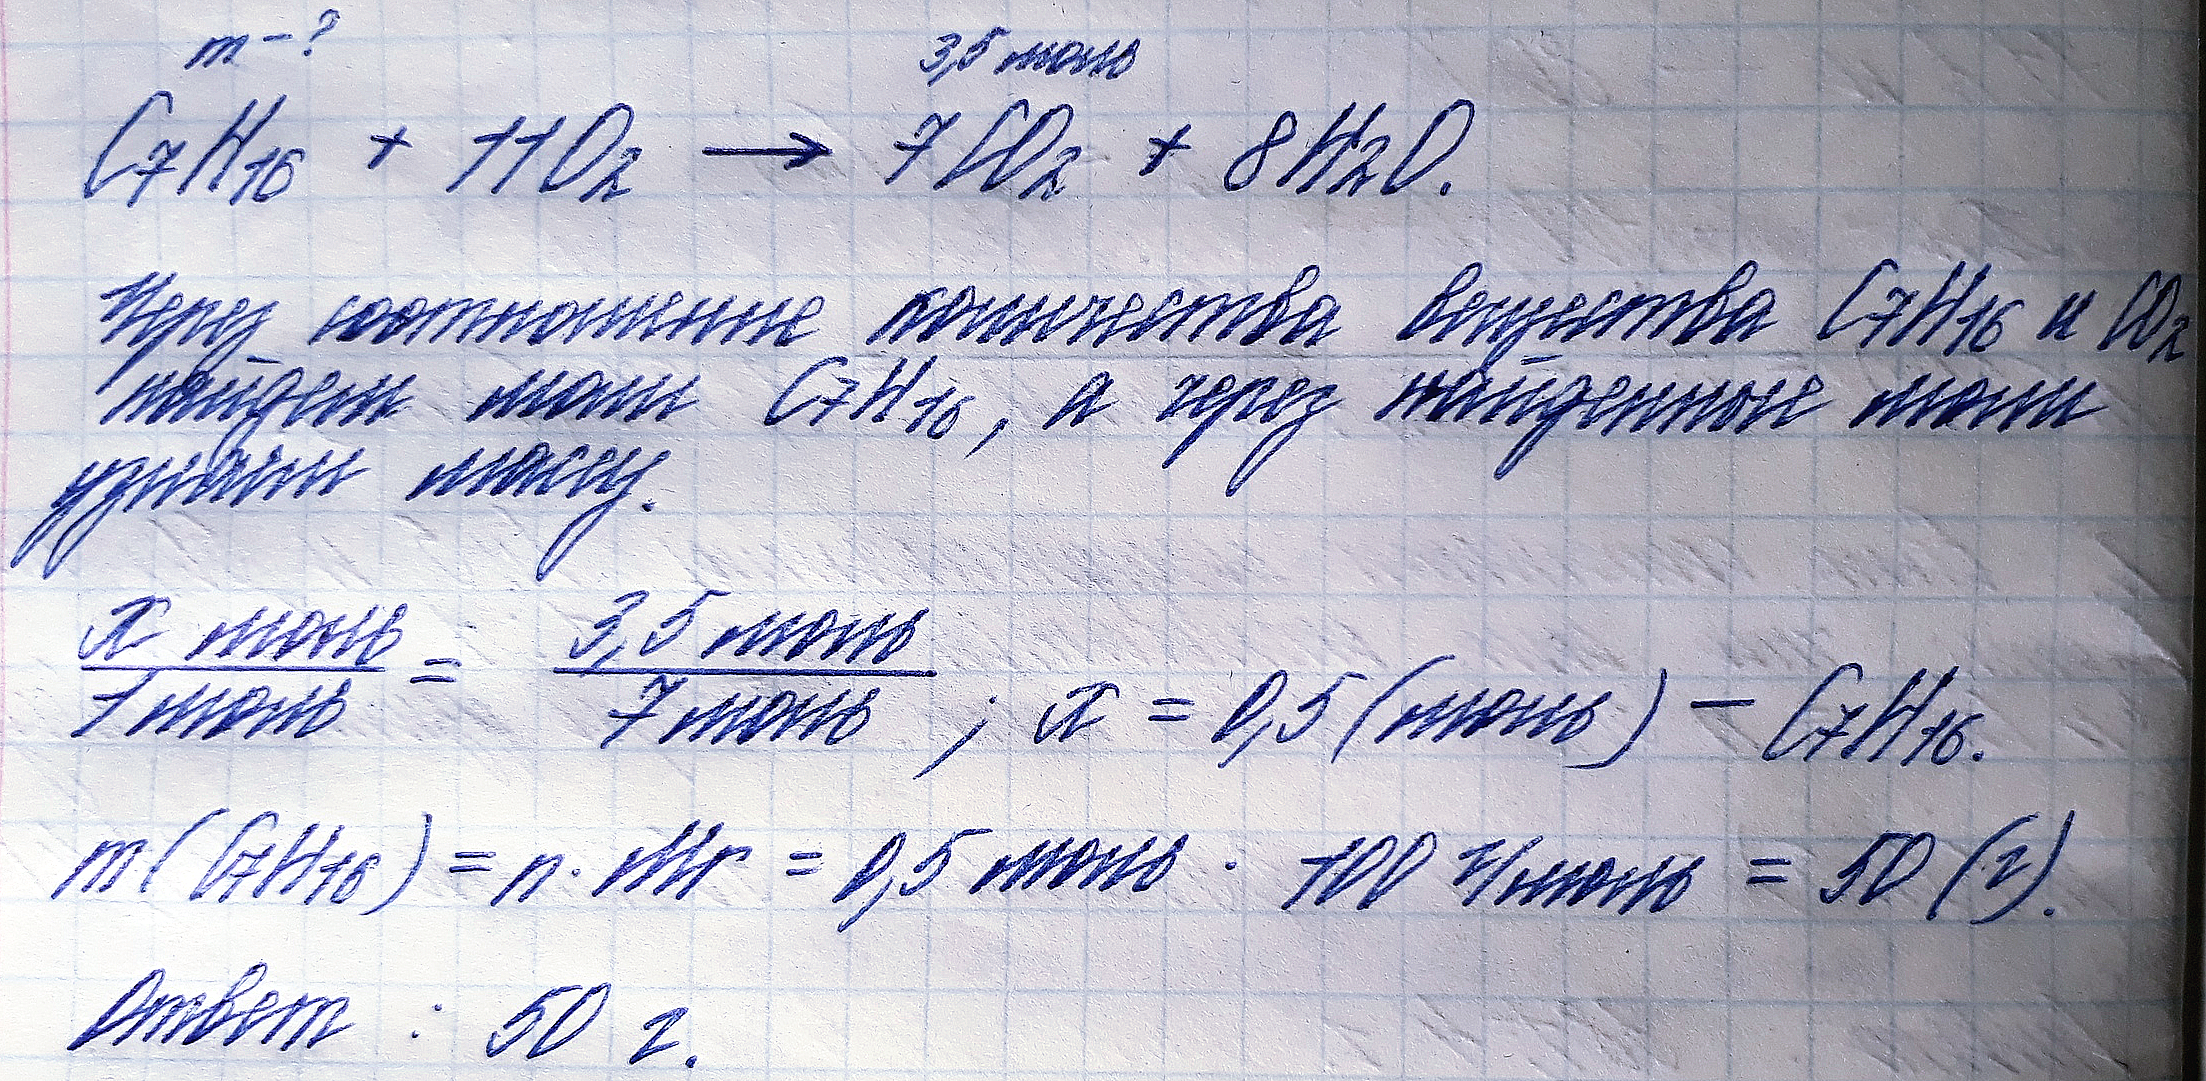 m - ? 3,5 моль
C₇H₁₆ + 11O₂ → 7CO₂ + 8H₂O.
Через соотношение количества вещества C₇H₁₆ и CO₂
найдём моли C₇H₁₆, а через найденные моли
узнаем массу.
x моль / 1 моль = 3,5 моль / 7 моль ; x = 0,5 (моль) – C₇H₁₆.
m(C₇H₁₆) = n · Mr = 0,5 моль · 100 г/моль = 50 (г).
Ответ : 50 г.